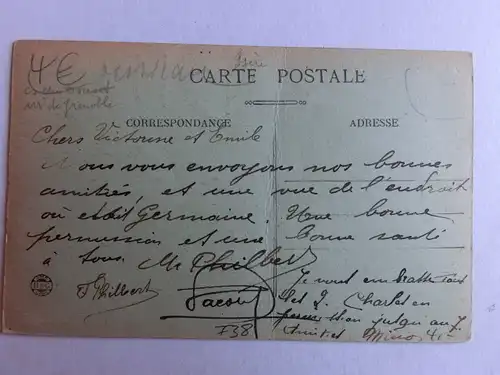 4€
Isère
CARTE POSTALE
CORRESPONDANCE
ADRESSE
Chers Victorine et Emile
Nous vous envoyons nos bonnes
amitiés et une vue de l'endroit
où était Germaine. Une bonne
permission et une bonne santé
à tous Me Philbert
J Philbert
Jacob
Je vous embrasse tous
les 2. Charlot en
permission jusqu'au 7
Amitiés
F38